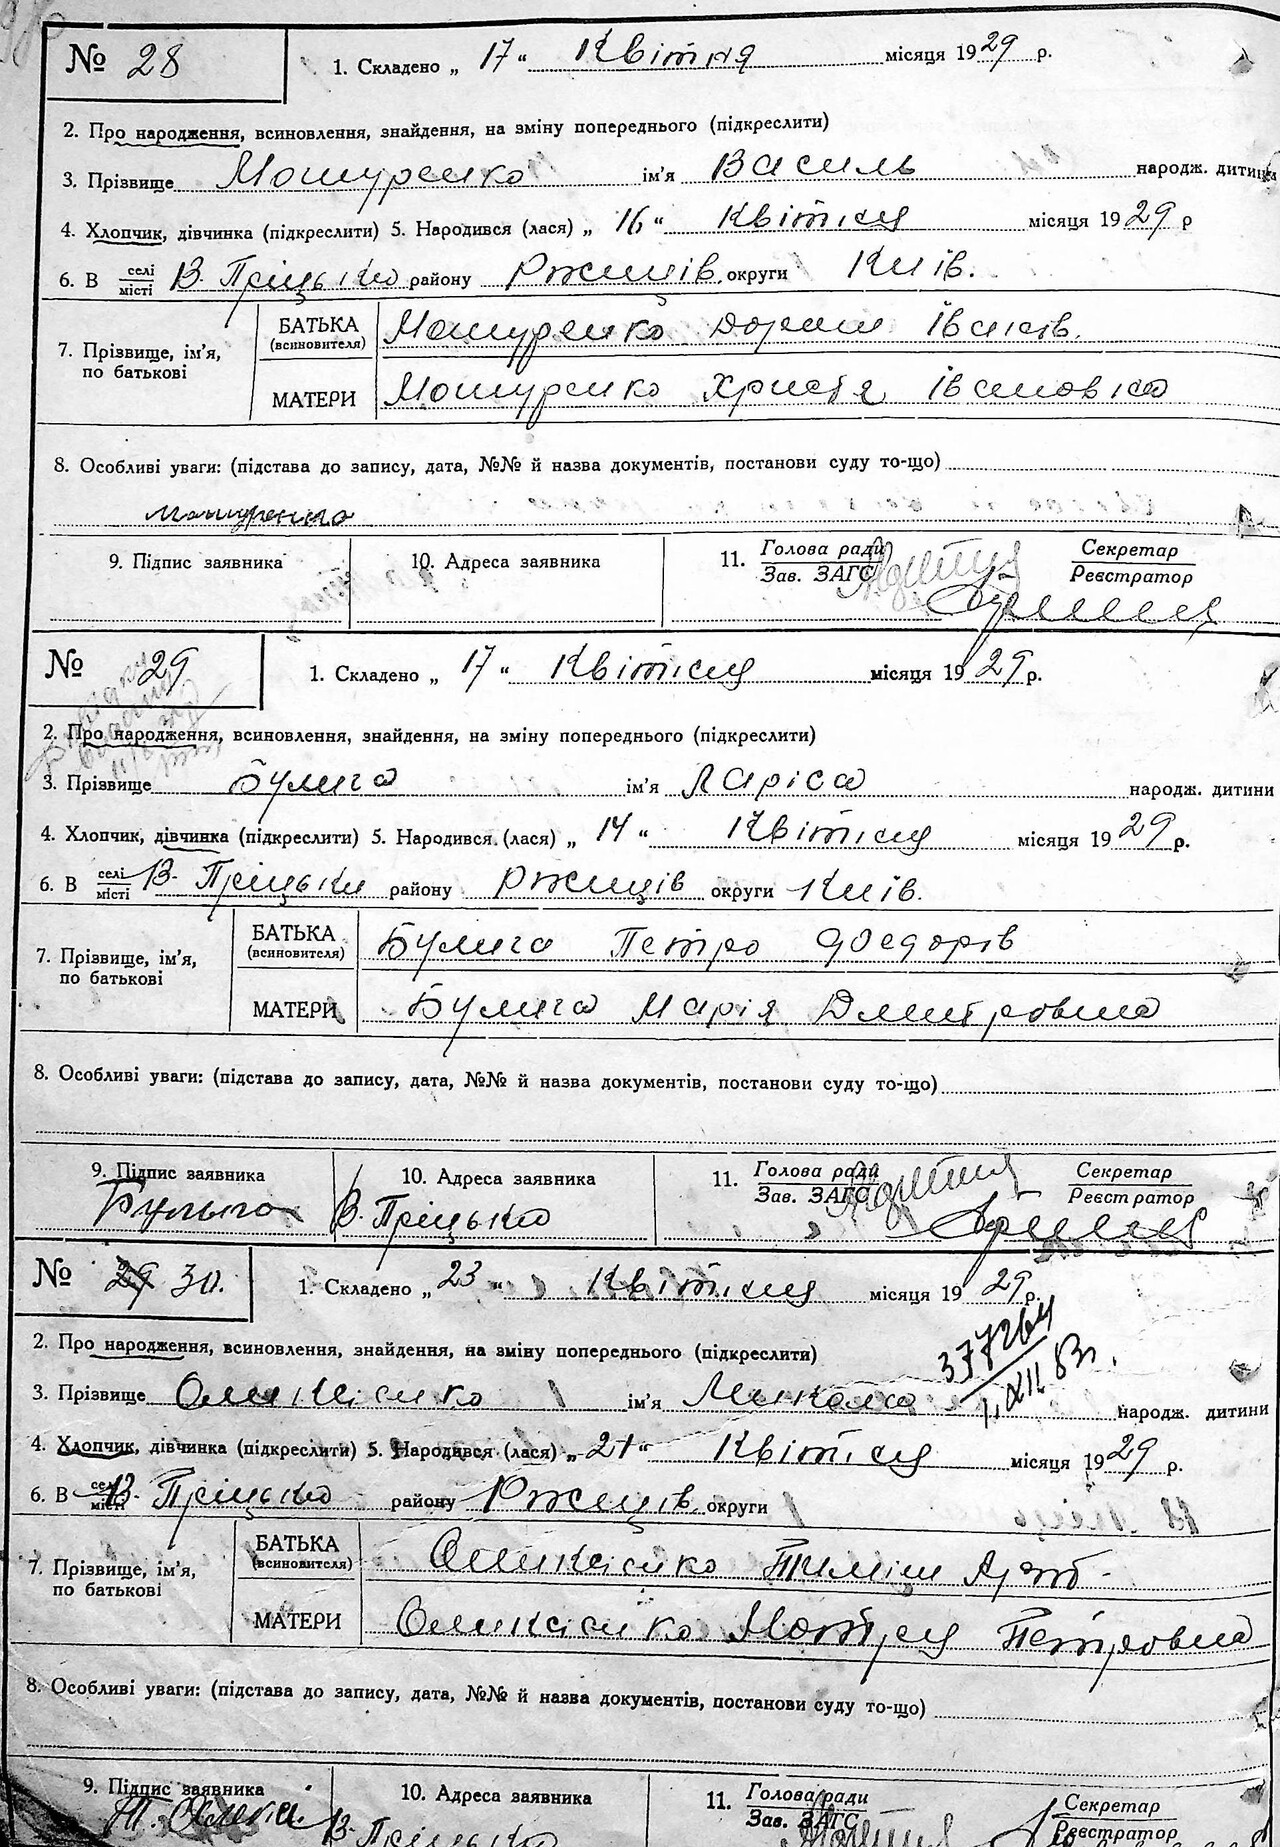 № 28 1. Складено „ 17 “ Квітня місяця 1929 р.
2. Про народження, всиновлення, знайдення, на зміну попереднього (підкреслити)
3. Прізвище Мошуренко ім'я Василь народж. дитини
4. Хлопчик, дівчинка (підкреслити) 5. Народився (лася) „ 16 “ Квітня місяця 1929 р
6. В селі місті В. Пріцьки району Ржищів округи Київ.
7. Прізвище, ім'я, по батькові
БАТЬКА (всиновителя) Мошуренко Іванів.
МАТЕРИ Мошуренко Христя Івановна
8. Особливі уваги: (підстава до запису, дата, №№ й назва документів, постанови суду то-що)
Мошуренко
9. Підпис заявника 10. Адреса заявника 11. Голова ради Зав. ЗАГС Секретар Реєстратор
№ 29 1. Складено „ 17 “ Квітня місяця 1929 р.
2. Про народження, всиновлення, знайдення, на зміну попереднього (підкреслити)
3. Прізвище Булига ім'я Ларіса народж. дитини
4. Хлопчик, дівчинка (підкреслити) 5. Народився (лася) „ 14 “ Квітня місяця 1929 р.
6. В селі місті В. Пріцьки району Ржищів округи Київ.
7. Прізвище, ім'я, по батькові
БАТЬКА (всиновителя) Булига Петро Федорів
МАТЕРИ Булига Марія Дмитровна
8. Особливі уваги: (підстава до запису, дата, №№ й назва документів, постанови суду то-що)
9. Підпис заявника 10. Адреса заявника 11. Голова ради Зав. ЗАГС Секретар Реєстратор
Булига В. Пріцьки
№ 29 30. 1. Складено „ 23 “ Квітня місяця 1929 р.
377264
1.XII 83г.
2. Про народження, всиновлення, знайдення, на зміну попереднього (підкреслити)
3. Прізвище ім'я Микола народж. дитини
4. Хлопчик, дівчинка (підкреслити) 5. Народився (лася) „ 21 “ Квітня місяця 1929 р.
6. В селі місті В. Пріцьки району Ржищів округи
7. Прізвище, ім'я, по батькові
БАТЬКА (всиновителя) Тиміш
МАТЕРИ Мотря Петровна
8. Особливі уваги: (підстава до запису, дата, №№ й назва документів, постанови суду то-що)
9. Підпис заявника 10. Адреса заявника 11. Голова ради Зав. ЗАГС Секретар Реєстратор
В. Пріцьки